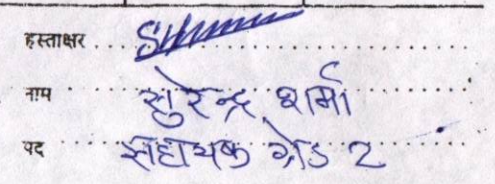 हस्ताक्षर
नाम सुरेन्द्र शर्मा
पद सहायक ग्रेड 2